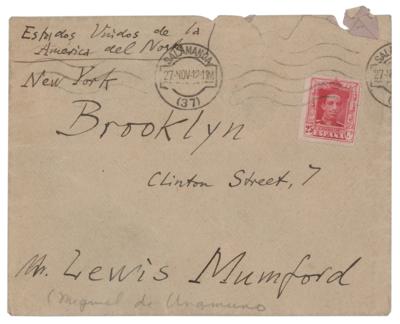 Estados Unidos de la
America del Norte
New York
SALAMANCA
27-NOV
(37)
ESPAÑA
Brooklyn
Clinton Street, 7
Mr. Lewis Mumford
(Miguel de Unamuno